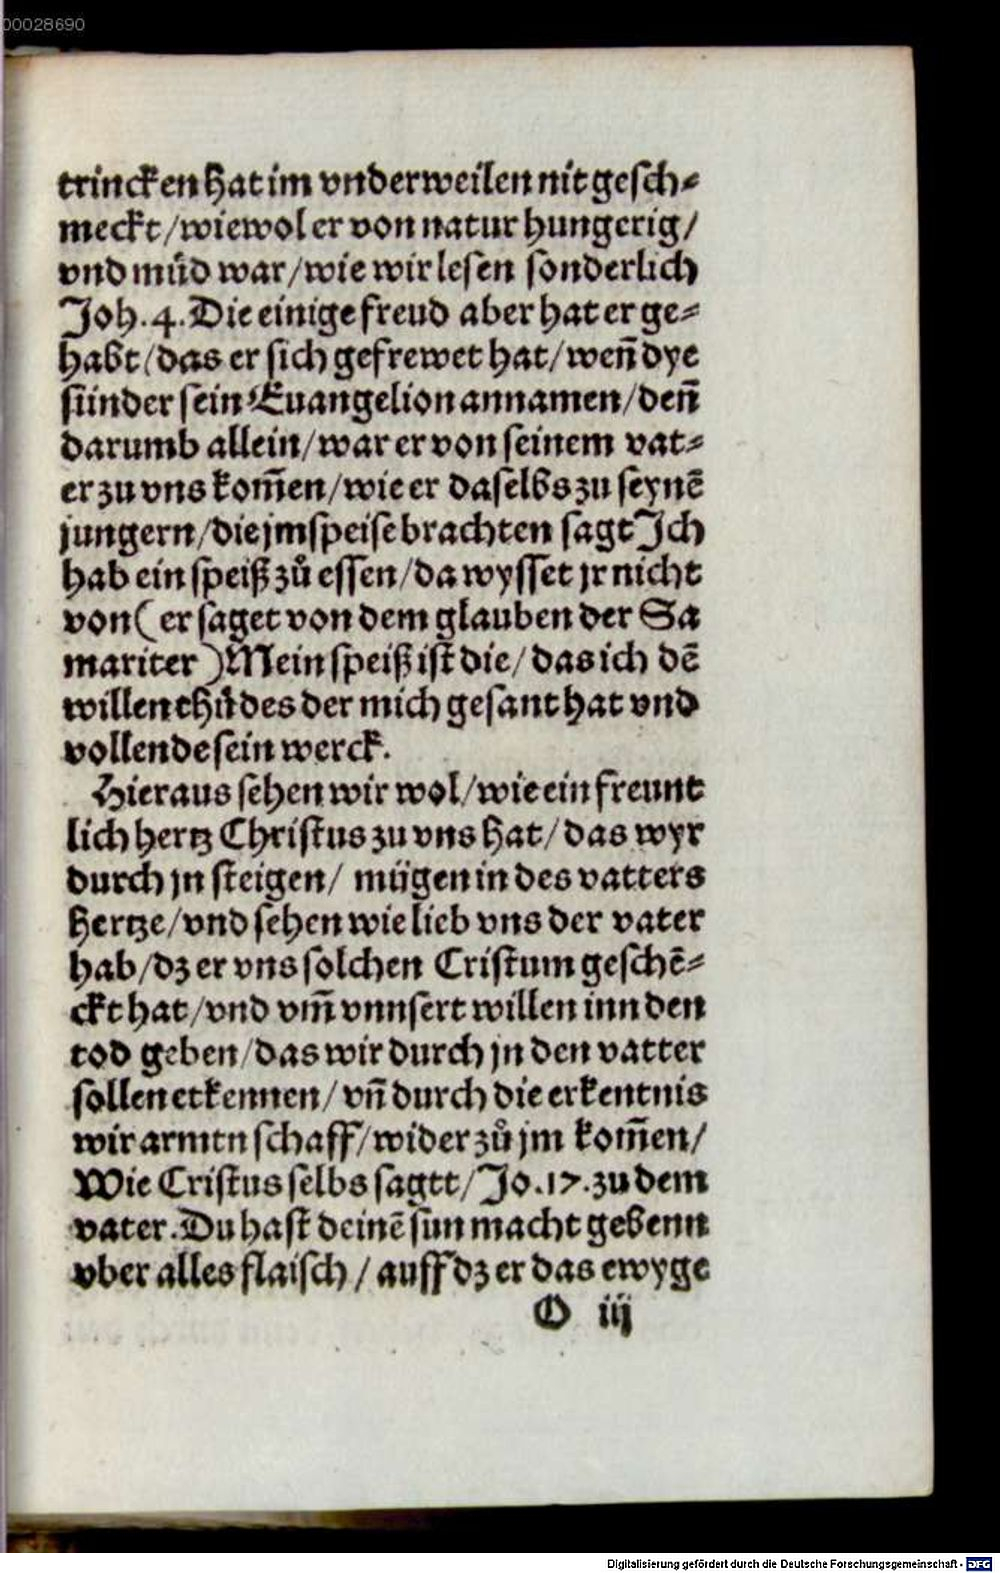 00028690
trincken hat im vnderweilen nit gesch⸗
meckt/wiewol er von natur hungerig/
vnd müd war/wie wir lesen sonderlich
Joh.4.Die einige freud aber hat er ge⸗
habt/das er sich gefrewet hat/wen̄ dye
sünder sein Euangelion annamen/den̄
darumb allein/war er von seinem vat⸗
er zu vns kom̄en/wie er daselbs zu seynē
jungern/die jm speise brachten sagt Ich
hab ein speiß zů essen/da wysset jr nicht
von(er saget von dem glauben der Sa
mariter)Mein speiß ist die/das ich dē
willen thů des der mich gesant hat vnd
vollende sein werck.
Hieraus sehen wir wol/wie ein freunt
lich hertz Christus zu vns hat/das wyr
durch jn steigen/ mügen in des vatters
hertze/vnd sehen wie lieb vns der vater
hab/dz er vns solchen Cristum geschē⸗
ckt hat/vnd vm̄ vnnsert willen inn den
tod geben/das wir durch jn den vatter
sollen etkennen/vn̄ durch die erkentnis
wir armtn schaff/wider zů jm kom̄en/
Wie Cristus selbs sagtt/Jo.17.zu dem
vater.Du hast deinē sun macht gebenn
vber alles flaisch/auff dz er das ewyge
O iij
Digitalisierung gefördert durch die Deutsche Forschungsgemeinschaft - DFG